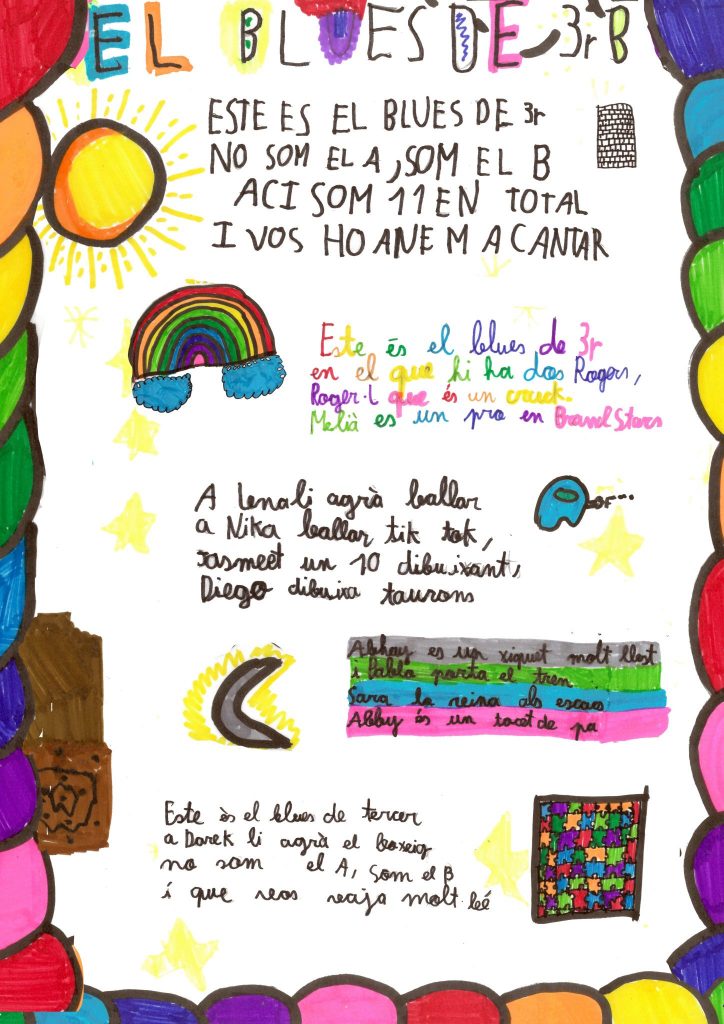 EL BLUES DE 3r B
ESTE ES EL BLUES DE 3r
NO SOM EL A, SOM EL B
ACI SOM 11 EN TOTAL
I VOS HO ANEM A CANTAR
Este és el blues de 3r
en el que hi ha dos Rogers,
Roger.l que és un crack.
Melià es un pro en Brawl Stars
A Lena li agrà ballar
a Nika ballar tik tok,
Jasmeet un 10 dibuixant,
Diego dibuixa taurons
Abhay es un xiquet molt llest
i Pablo porta el tren
Sara la reina als escacs
Abby és un tocet de pa
Este és el blues de tercer
a Darek li agrà el boxeig
no som el A, som el B
i que vos vaja molt bé